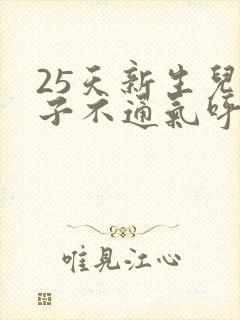 25天新生兒
子不通氣呼
唯見江心